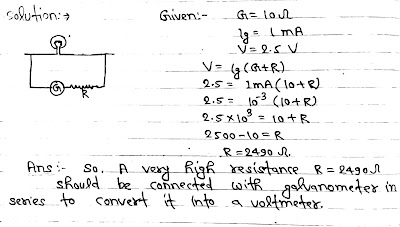 Solution:→
Given:- G = 10 Ω
Ig = 1 mA
V = 2.5 V
V = Ig (G+R)
2.5 = 1mA (10+R)
2.5 = 10⁻³ (10+R)
2.5 × 10³ = 10 + R
2500 - 10 = R
R = 2490 Ω.
G
R
Ans:- So, A very high resistance R = 2490 Ω
should be connected with galvanometer in
series to convert it into a voltmeter.